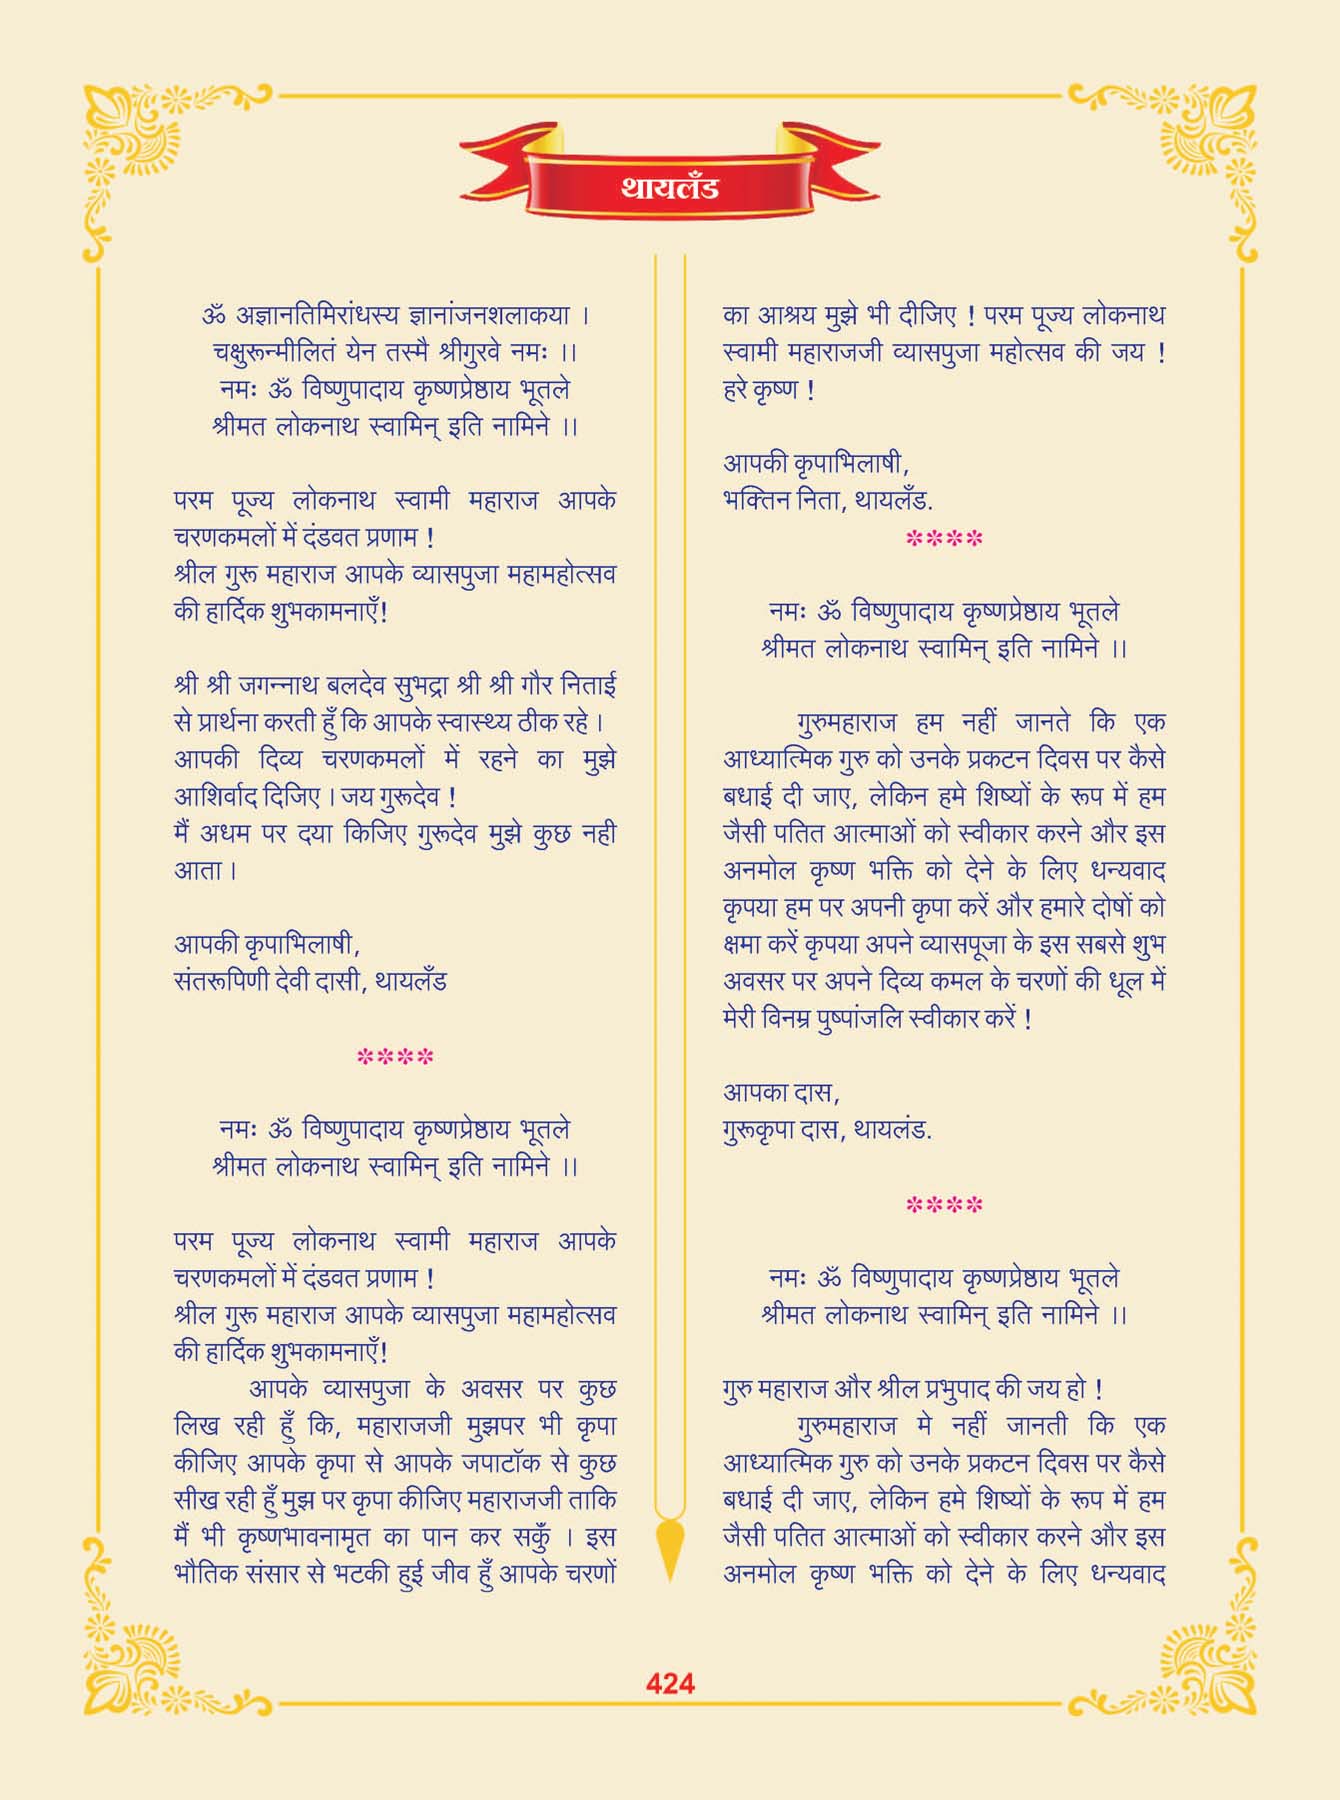 थायलँड
ॐ अज्ञानतिमिरांधस्य ज्ञानांजनशलाकया ।
चक्षुरून्मीलितं येन तस्मै श्रीगुरवे नमः ।।
नमः ॐ विष्णुपादाय कृष्णप्रेष्ठाय भूतले
श्रीमत लोकनाथ स्वामिन् इति नामिने ।।
परम पूज्य लोकनाथ स्वामी महाराज आपके
चरणकमलों में दंडवत प्रणाम !
श्रील गुरू महाराज आपके व्यासपुजा महामहोत्सव
की हार्दिक शुभकामनाएँ!
श्री श्री जगन्नाथ बलदेव सुभद्रा श्री श्री गौर निताई
से प्रार्थना करती हुँ कि आपके स्वास्थ्य ठीक रहे ।
आपकी दिव्य चरणकमलों में रहने का मुझे
आशिर्वाद दिजिए । जय गुरूदेव !
मैं अधम पर दया किजिए गुरूदेव मुझे कुछ नही
आता ।
आपकी कृपाभिलाषी,
संतरूपिणी देवी दासी, थायलँड
****
नमः ॐ विष्णुपादाय कृष्णप्रेष्ठाय भूतले
श्रीमत लोकनाथ स्वामिन् इति नामिने ।।
परम पूज्य लोकनाथ स्वामी महाराज आपके
चरणकमलों में दंडवत प्रणाम !
श्रील गुरू महाराज आपके व्यासपुजा महामहोत्सव
की हार्दिक शुभकामनाएँ!
आपके व्यासपुजा के अवसर पर कुछ
लिख रही हुँ कि, महाराजजी मुझपर भी कृपा
कीजिए आपके कृपा से आपके जपाटॉक से कुछ
सीख रही हुँ मुझ पर कृपा कीजिए महाराजजी ताकि
मैं भी कृष्णभावनामृत का पान कर सकुँ । इस
भौतिक संसार से भटकी हुई जीव हुँ आपके चरणों
का आश्रय मुझे भी दीजिए ! परम पूज्य लोकनाथ
स्वामी महाराजजी व्यासपुजा महोत्सव की जय !
हरे कृष्ण !
आपकी कृपाभिलाषी,
भक्तिन निता, थायलँड.
****
नमः ॐ विष्णुपादाय कृष्णप्रेष्ठाय भूतले
श्रीमत लोकनाथ स्वामिन् इति नामिने ।।
गुरुमहाराज हम नहीं जानते कि एक
आध्यात्मिक गुरु को उनके प्रकटन दिवस पर कैसे
बधाई दी जाए, लेकिन हमे शिष्यों के रूप में हम
जैसी पतित आत्माओं को स्वीकार करने और इस
अनमोल कृष्ण भक्ति को देने के लिए धन्यवाद
कृपया हम पर अपनी कृपा करें और हमारे दोषों को
क्षमा करें कृपया अपने व्यासपूजा के इस सबसे शुभ
अवसर पर अपने दिव्य कमल के चरणों की धूल में
मेरी विनम्र पुष्पांजलि स्वीकार करें !
आपका दास,
गुरूकृपा दास, थायलंड.
****
नमः ॐ विष्णुपादाय कृष्णप्रेष्ठाय भूतले
श्रीमत लोकनाथ स्वामिन् इति नामिने ।।
गुरु महाराज और श्रील प्रभुपाद की जय हो !
गुरुमहाराज मे नहीं जानती कि एक
आध्यात्मिक गुरु को उनके प्रकटन दिवस पर कैसे
बधाई दी जाए, लेकिन हमे शिष्यों के रूप में हम
जैसी पतित आत्माओं को स्वीकार करने और इस
अनमोल कृष्ण भक्ति को देने के लिए धन्यवाद
424